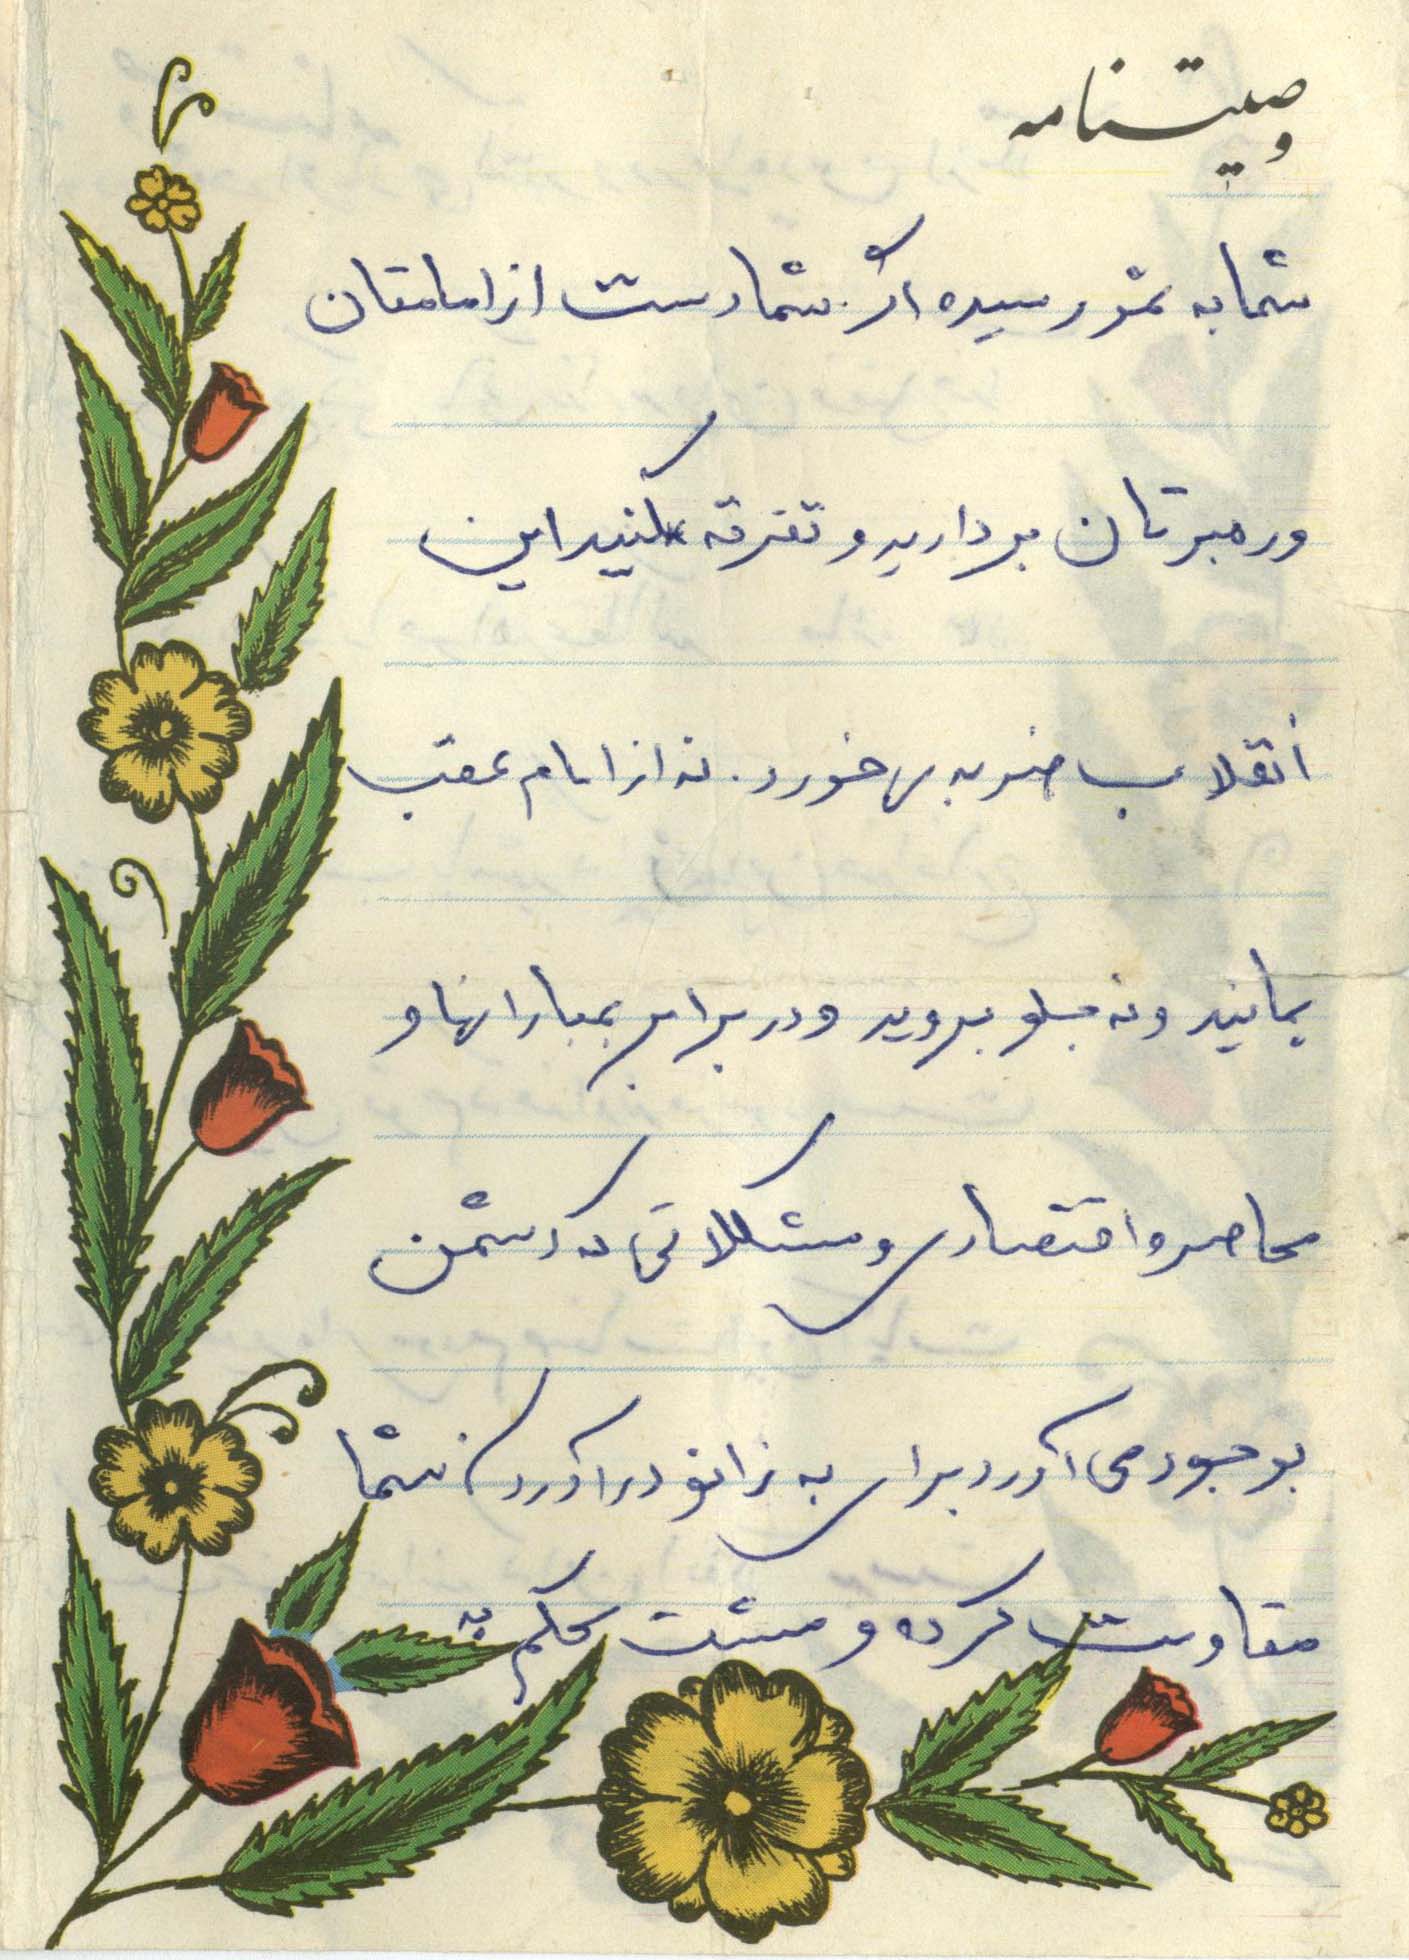 وصیتنامه
شما به ثمر رسیده اگر شما دست از امامتان
و رهبرتان بردارید و تفرقه کنید این
انقلاب ضربه می خورد. نه از امام عقب
بمانید و نه جلو بروید و در برابر بمبارانها و
محاصره اقتصادی و مشکلاتی که دشمن
بوجود می آورد برای به زانو درآوردن شما
مقاومت کرده و مشت محکم به